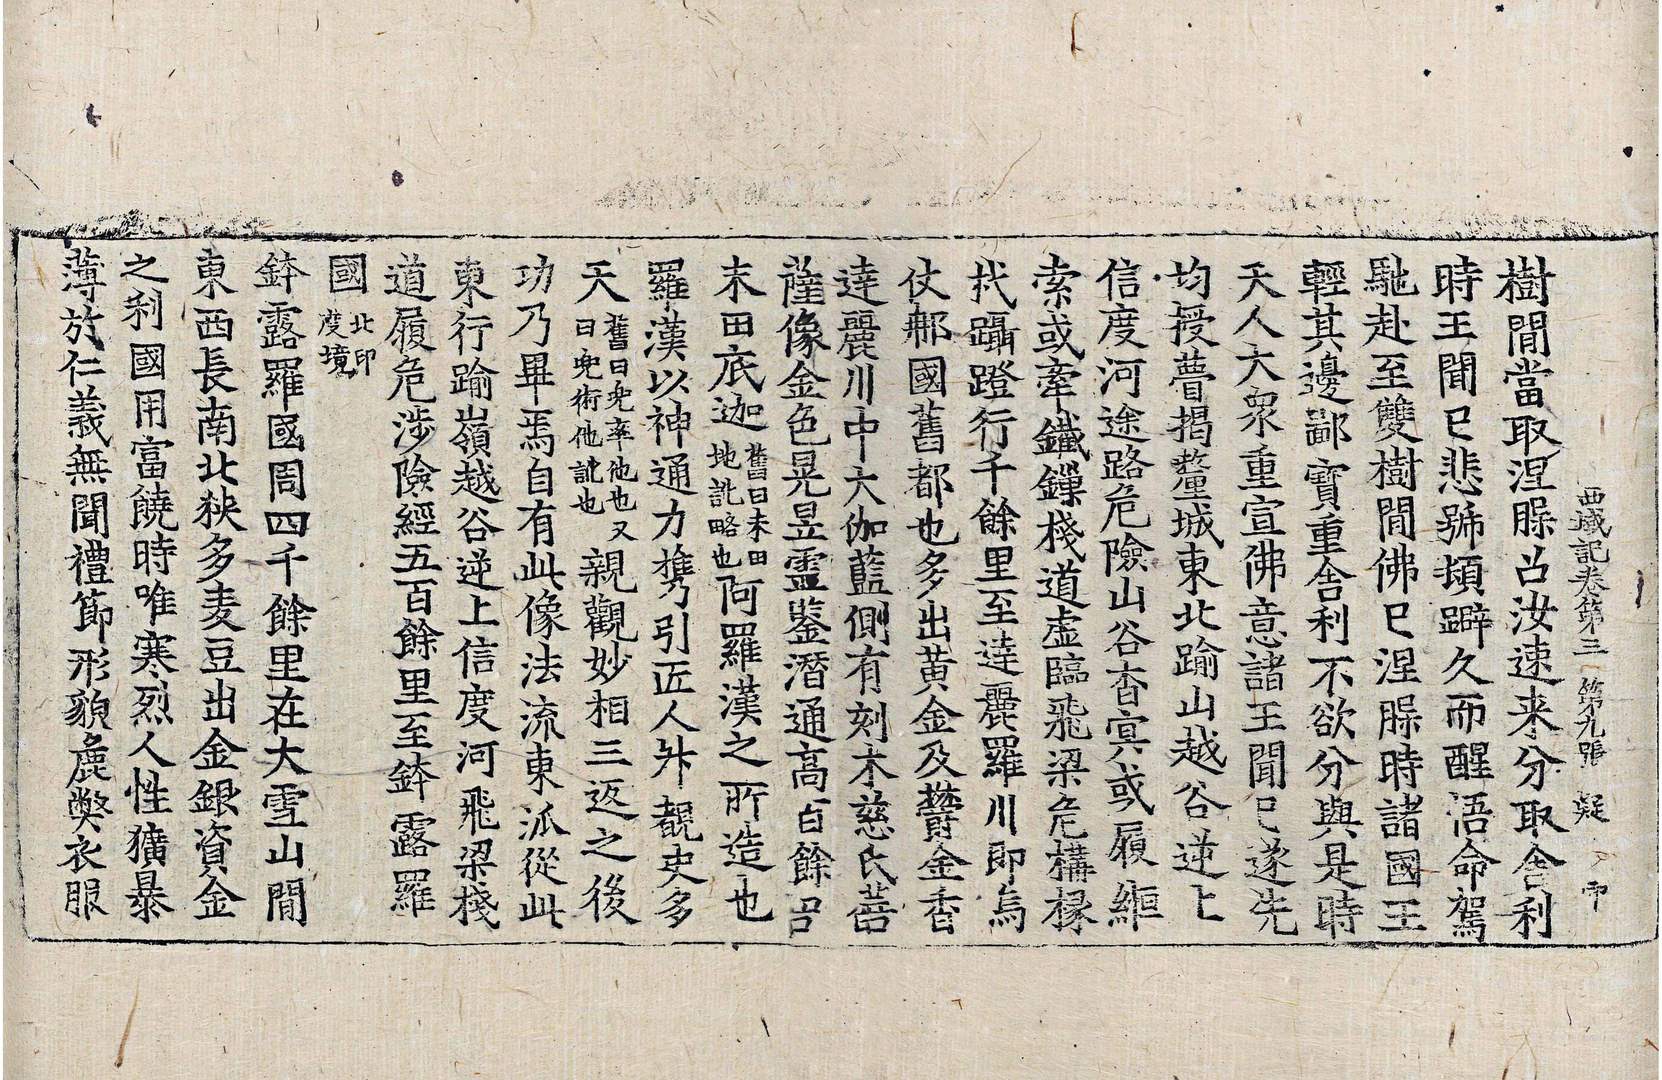 西域記卷第三 第九張 疑
樹間當取涅槃召汝速来分取舍利
時王聞已悲號頓躃久而醒悟命駕
馳赴至雙樹間佛已涅槃時諸國王
輕其邊鄙寶重舍利不欲分與是時
天人大衆重宣佛意諸王聞已遂先
均授瞢揭釐城東北踰山越谷逆上
信度河途路危險山谷杳冥或履縆
索或牽鐵鏁棧道虛臨飛梁危構椽
杙躡蹬行千餘里至達麗羅川即烏
仗那國舊都也多出黄金及鬱金香
達麗川中大伽藍側有刻木慈氏菩
薩像金色晃昱靈鑒潛通高百餘尺
末田底迦舊曰末田地訛略也阿羅漢之所造也
羅漢以神通力携引匠人昇覩史多
天舊曰兜率他也又曰兜術他訛也親觀妙相三返之後
功乃畢焉自有此像法流東派從此
東行踰嶺越谷逆上信度河飛梁棧
道履危涉險經五百餘里至鉢露羅
國北印度境
鉢露羅國周四千餘里在大雪山間
東西長南北狹多麦豆出金銀資金
之利國用富饒時唯寒烈人性獷暴
薄於仁義無聞禮節形貌麁弊衣服